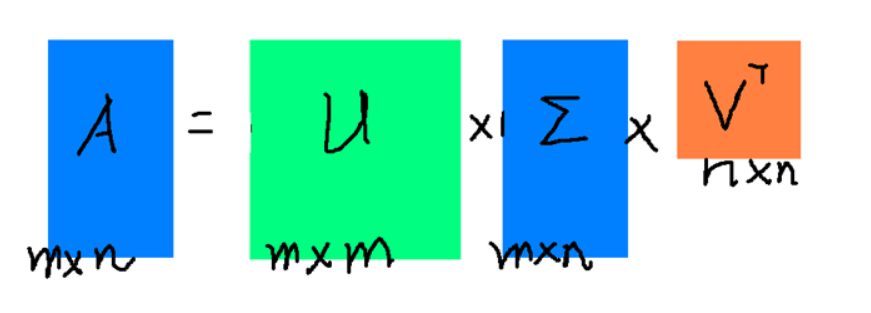 A = U × Σ × Vᵀ
m×n m×m m×n n×n